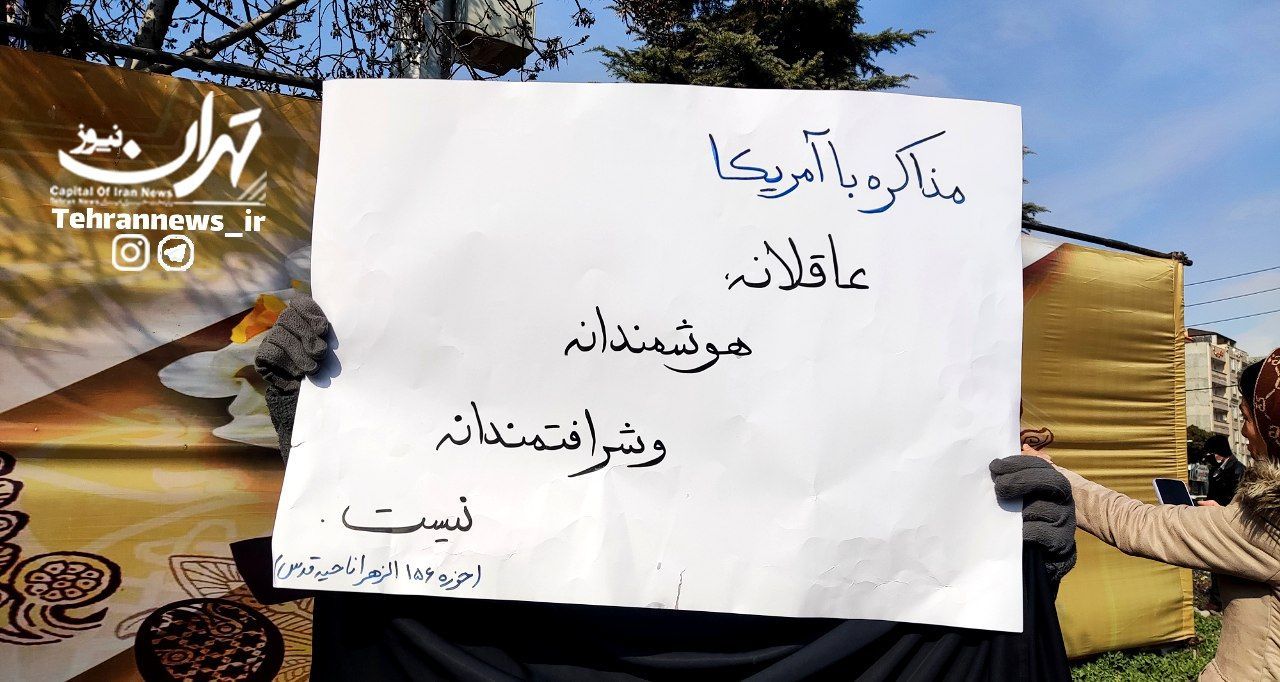 تهران نیوز
Capital Of Iran News
Tehrannews_ir
مذاکره با آمریکا
عاقلانه،
هوشمندانه
وشرافتمندانه
نیست .
(حوزه ۱۵۶ الزهرا ناحیه قدس)